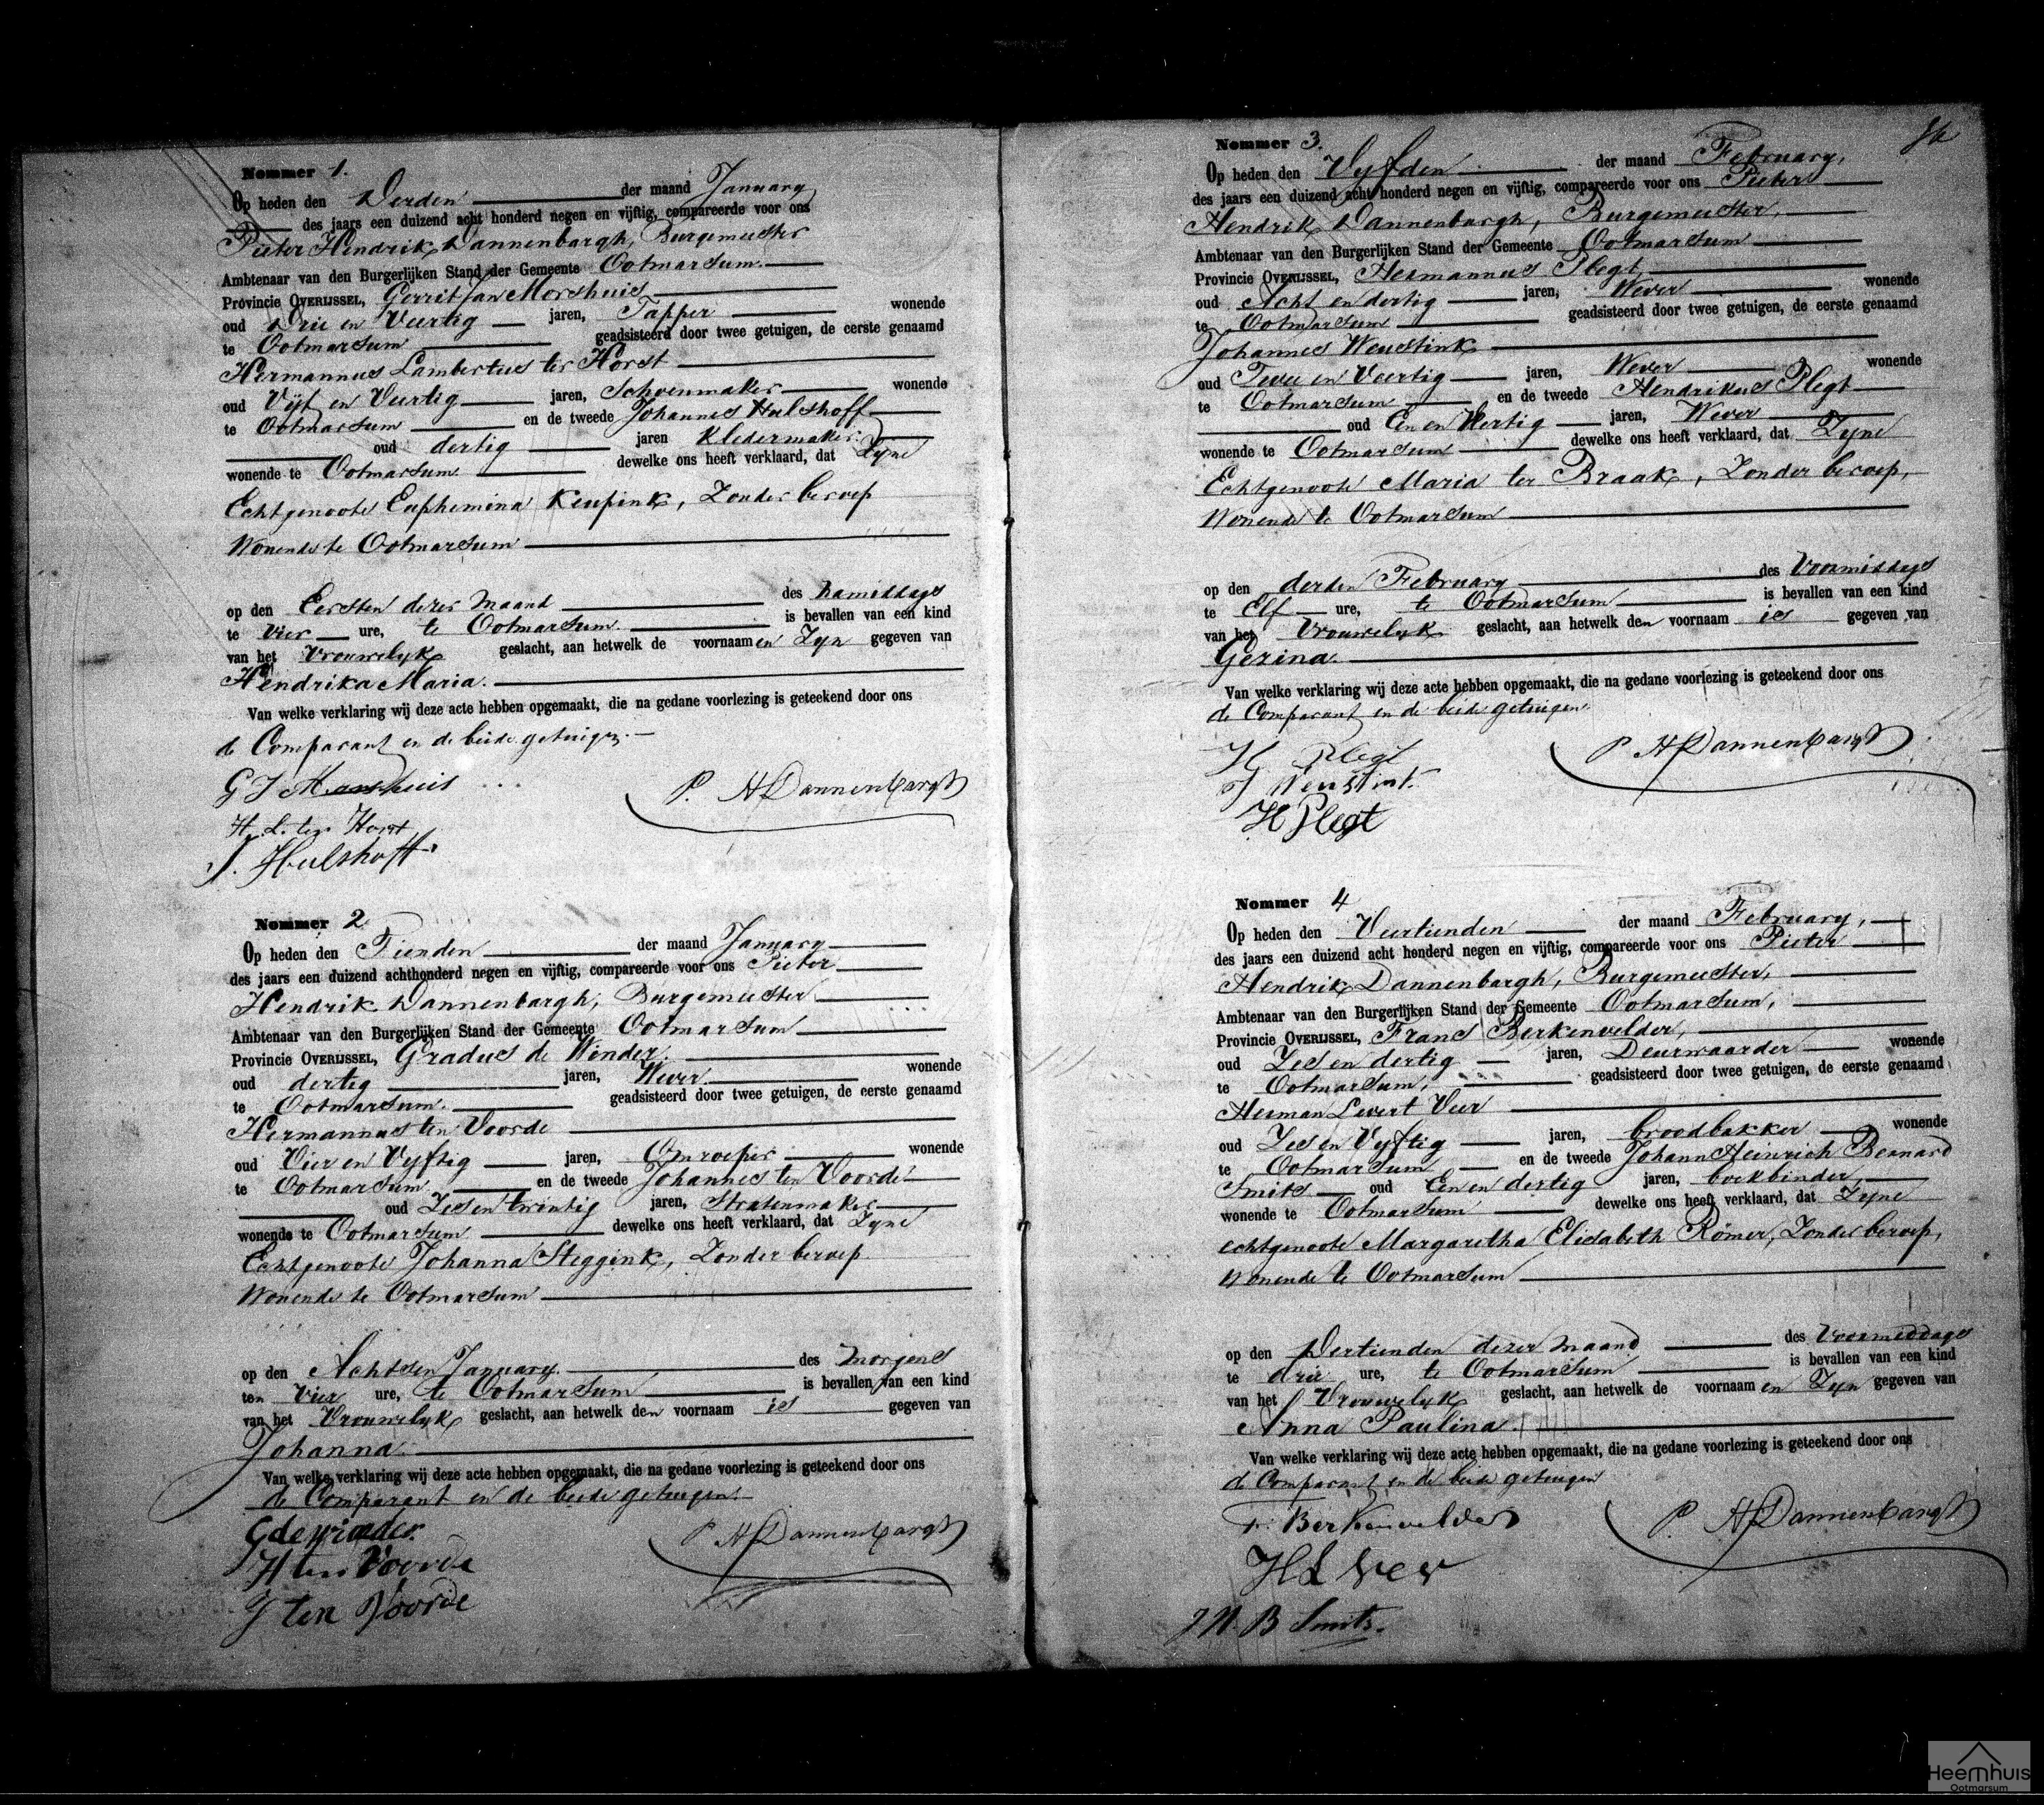 Nommer 1.
Op heden den Derden der maand January
des jaars een duizend acht honderd negen en vijftig, compareerde voor ons
Pieter Hendrik Dannenbargh, Burgemeester
Ambtenaar van den Burgerlijken Stand der Gemeente Ootmarsum.
Provincie OVERIJSSEL, Gerrit Jan Morshuis
oud Drie en Veertig jaren, Tapper wonende
te Ootmarsum geadsisteerd door twee getuigen, de eerste genaamd
Hermannus Lambertus ter Horst
oud Vijf en Veertig jaren, Schoenmaker wonende
te Ootmarsum en de tweede Johannes Hulshoff
oud dertig jaren Kledermaker.
wonende te Ootmarsum dewelke ons heeft verklaard, dat Zyne
Echtgenoote Euphemina Keupink, Zonder beroep
Wonende te Ootmarsum
op den Eersten dezer maand des namiddags
te vier ure, te Ootmarsum. is bevallen van een kind
van het Vrouwelyk geslacht, aan hetwelk de voornaamen Zyn gegeven van
Hendrika Maria.
Van welke verklaring wij deze acte hebben opgemaakt, die na gedane voorlezing is geteekend door ons
de Comparant en de beide getuigen.
G J Morshuis
P. H Dannenbargh
H. L. ter Horst
J. Hulshoff
Nommer 2
Op heden den Tienden der maand January
des jaars een duizend achthonderd negen en vijftig, compareerde voor ons Pieter
Hendrik Dannenbargh, Burgemeester
Ambtenaar van den Burgerlijken Stand der Gemeente Ootmarsum
Provincie OVERIJSSEL, Gradus de Winder.
oud dertig jaren, Wever wonende
te Ootmarsum. geadsisteerd door twee getuigen, de eerste genaamd
Hermannus ten Voorde
oud Vier en Vyftig jaren, Omroeper wonende
te Ootmarsum en de tweede Johannes ten Voorde
oud Zes en twintig jaren, Stratenmaker
wonende te Ootmarsum dewelke ons heeft verklaard, dat Zyne
Echtgenoote Johanna Steggink, Zonder beroep
Wonende te Ootmarsum
op den Achtsten January. des morgens
ten Vier ure, te Ootmarsum is bevallen van een kind
van het Vrouwelyk geslacht, aan hetwelk den voornaam is gegeven van
Johanna.
Van welke verklaring wij deze acte hebben opgemaakt, die na gedane voorlezing is geteekend door ons
de Comparant en de beide getuigen.
G de Winder
P. H Dannenbargh
H ten Voorde
J ten Voorde
Nommer 3.
Op heden den Vyfden der maand February,
des jaars een duizend acht honderd negen en vijftig, compareerde voor ons Pieter
Hendrik Dannenbargh, Burgemeester,
Ambtenaar van den Burgerlijken Stand der Gemeente Ootmarsum
Provincie OVERIJSSEL, Hermannus Plegt,
oud Acht en dertig jaren, Wever wonende
te Ootmarsum geadsisteerd door twee getuigen, de eerste genaamd
Johannes Weustink
oud Twee en Veertig jaren, Wever wonende
te Ootmarsum en de tweede Hendrikus Plegt
oud Een en Veertig jaren, Wever
wonende te Ootmarsum dewelke ons heeft verklaard, dat Zyne
Echtgenoote Maria ter Braak, Zonder beroep,
Wonende te Ootmarsum
op den derden February des Voormiddags
te Elf ure, te Ootmarsum is bevallen van een kind
van het Vrouwelyk geslacht, aan hetwelk den voornaam is gegeven van
Gezina.
Van welke verklaring wij deze acte hebben opgemaakt, die na gedane voorlezing is geteekend door ons
de Comparant en de beide getuigen.
H Plegt
P H Dannenbargh
J Weustink
H Plegt
Nommer 4
Op heden den Veertienden der maand February,
des jaars een duizend acht honderd negen en vijftig, compareerde voor ons Pieter
Hendrik Dannenbargh, Burgemeester,
Ambtenaar van den Burgerlijken Stand der Gemeente Ootmarsum,
Provincie OVERIJSSEL, Frans Berkenvelder,
oud Zes en dertig jaren, Deurwaarder wonende
te Ootmarsum, geadsisteerd door twee getuigen, de eerste genaamd
Herman Levert Veer
oud Zes en Vyftig jaren, broodbakker wonende
te Ootmarsum en de tweede Johann Heinrich Bernard
Smits oud Een en dertig jaren, boekbinder,
wonende te Ootmarsum dewelke ons heeft verklaard, dat Zyne
echtgenoote Margaretha Elisabeth Römer, Zonder beroep,
Wonende te Ootmarsum
op den Dertienden dezer maand des Voormiddags
te drie ure, te Ootmarsum is bevallen van een kind
van het Vrouwelyk geslacht, aan hetwelk de voornaamen Zyn gegeven van
Anna Paulina.
Van welke verklaring wij deze acte hebben opgemaakt, die na gedane voorlezing is geteekend door ons
de Comparant en de beide getuigen
F. Berkenvelder
P. H Dannenbargh
H L Veer
J. H. B Smits.
Heemhuis
Ootmarsum